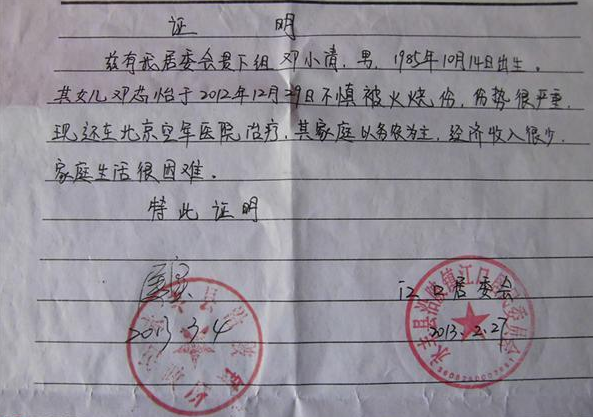 证 明
兹有我居委会贯下组 邓小清,男,1985年10月14日出生。
其女儿邓芯怡于2012年12月29日不慎被火烧伤,伤势很严重,
现还在北京空军医院治疗,其家庭以务农为主,经济收入很少,
家庭生活很困难。
特此证明
属实
2013.3.4
江口居委会
2013.2.27
永丰县沿陂镇江口居民委员会